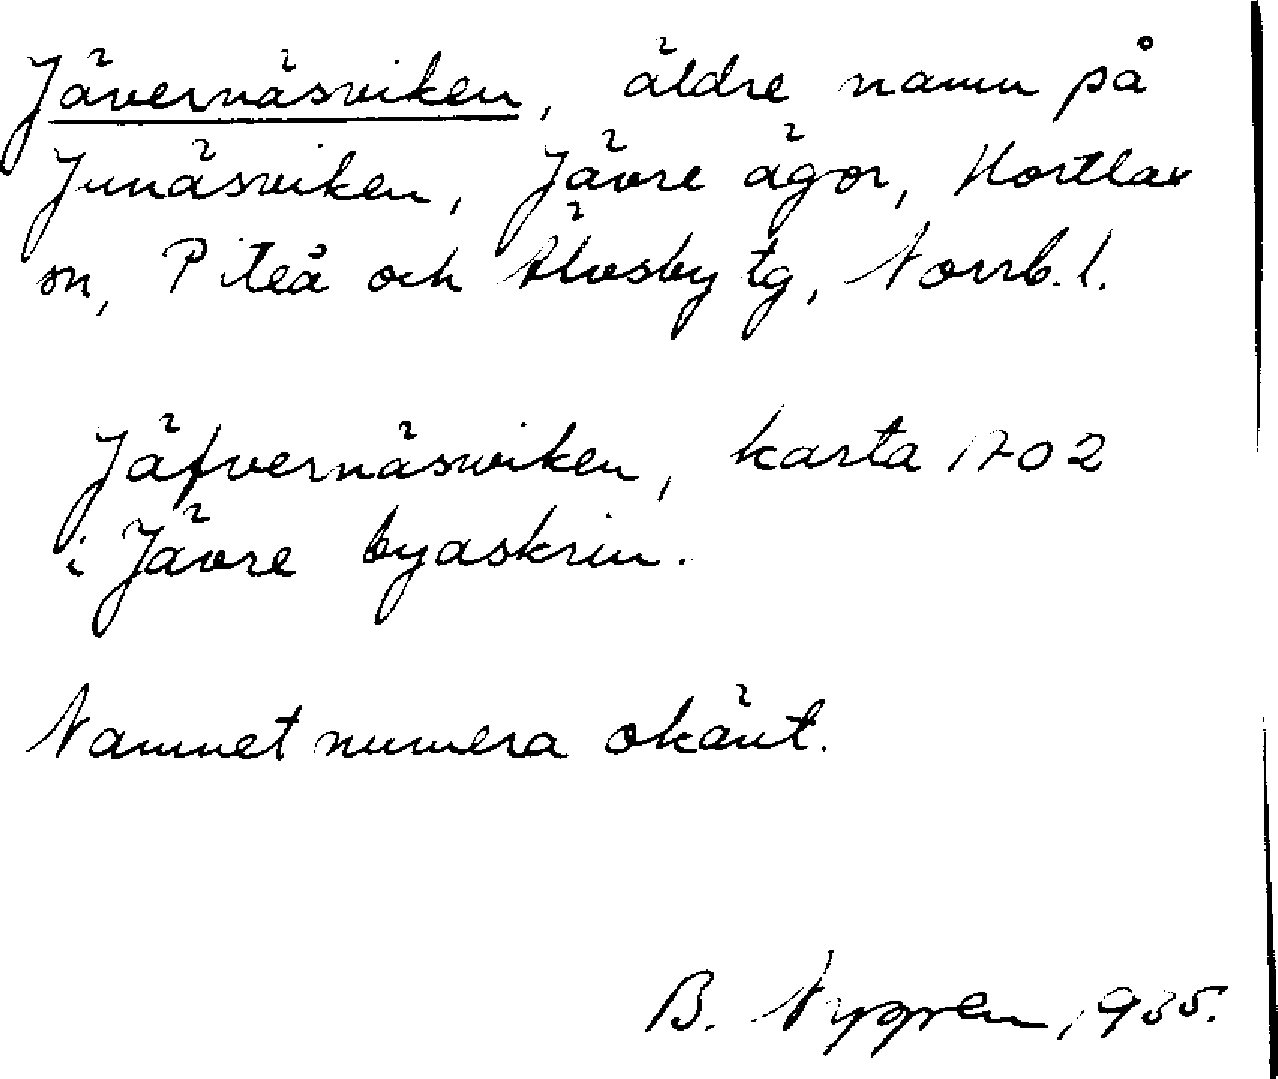 Jävernäsviken, äldre namn på
Junäsviken, Jävre ägor, Hortlax
sn, Piteå och Älvsby tg, Norrb. l.
Jäfvernäswiken, karta 1702
i Jävre byaskrin.
Namnet numera okänt.
B. Nygren, 1935.